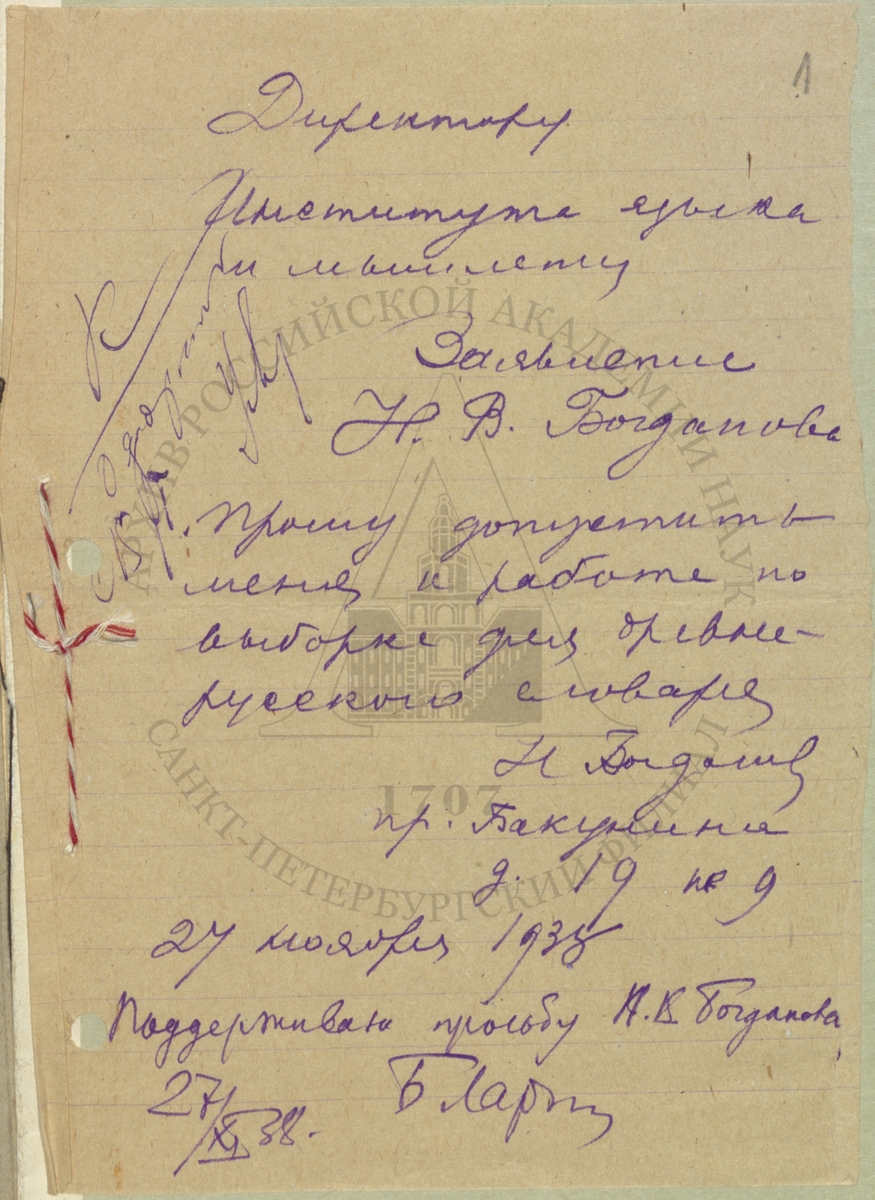 1
Директору
Института языка
и мышления
Заявление
Н. В. Богданова
Прошу допустить
меня к работе по
выборке для древне-
русского словаря
Н Богданов
пр. Бакунина
д. 19 кв 9
27 ноября 1938
Поддерживаю просьбу Н. В. Богданова
Б Ларин
27/XI 38.
АРХИВ РОССИЙСКОЙ АКАДЕМИИ НАУК
САНКТ-ПЕТЕРБУРГСКИЙ ФИЛИАЛ
1707